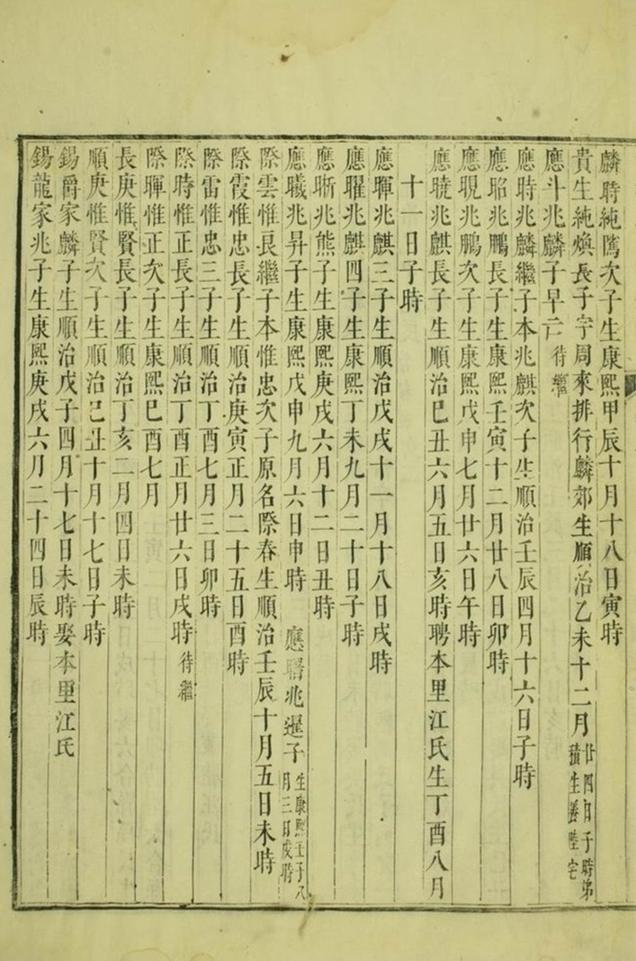 麟時純鷹次子生康熙甲辰十月十八日寅時
貴生純煥長子字周來排行麟郊生順治乙未十二月廿四日子時弟積生善陸宅
應斗兆麟子早亡待繼
應時兆麟繼子本兆麒次子生順治壬辰四月十六日子時
應昭兆鵬長子生康熙壬寅十二月廿八日卯時
應晛兆鵬次子生康熙戊申七月廿六日午時
應曉兆麒長子生順治己丑六月五日亥時聘本里江氏生丁酉八月
十一日子時
應暉兆麒三子生順治戊戌十一月十八日戌時
應曜兆麒四子生康熙丁未九月二十日子時
應晣兆熊子生康熙庚戌六月十二日丑時
應曦兆昇子生康熙戊申九月六日申時 應兆暹子生康熙壬子八月三日戌時
際雲惟良繼子本惟忠次子原名際春生順治壬辰十月五日未時
際霞惟忠長子生順治庚寅正月二十五日酉時
際雷惟忠三子生順治丁酉七月三日卯時
際時惟正長子生順治丁酉正月廿六日戌時待繼
際暉惟正次子生康熙己酉七月
長庚惟賢長子生順治丁亥二月四日未時
順庚惟賢次子生順治己丑十月十七日子時
錫爵家麟子生順治戊子四月十七日未時娶本里江氏
錫龍家兆子生康熙庚戌六月二十四日辰時